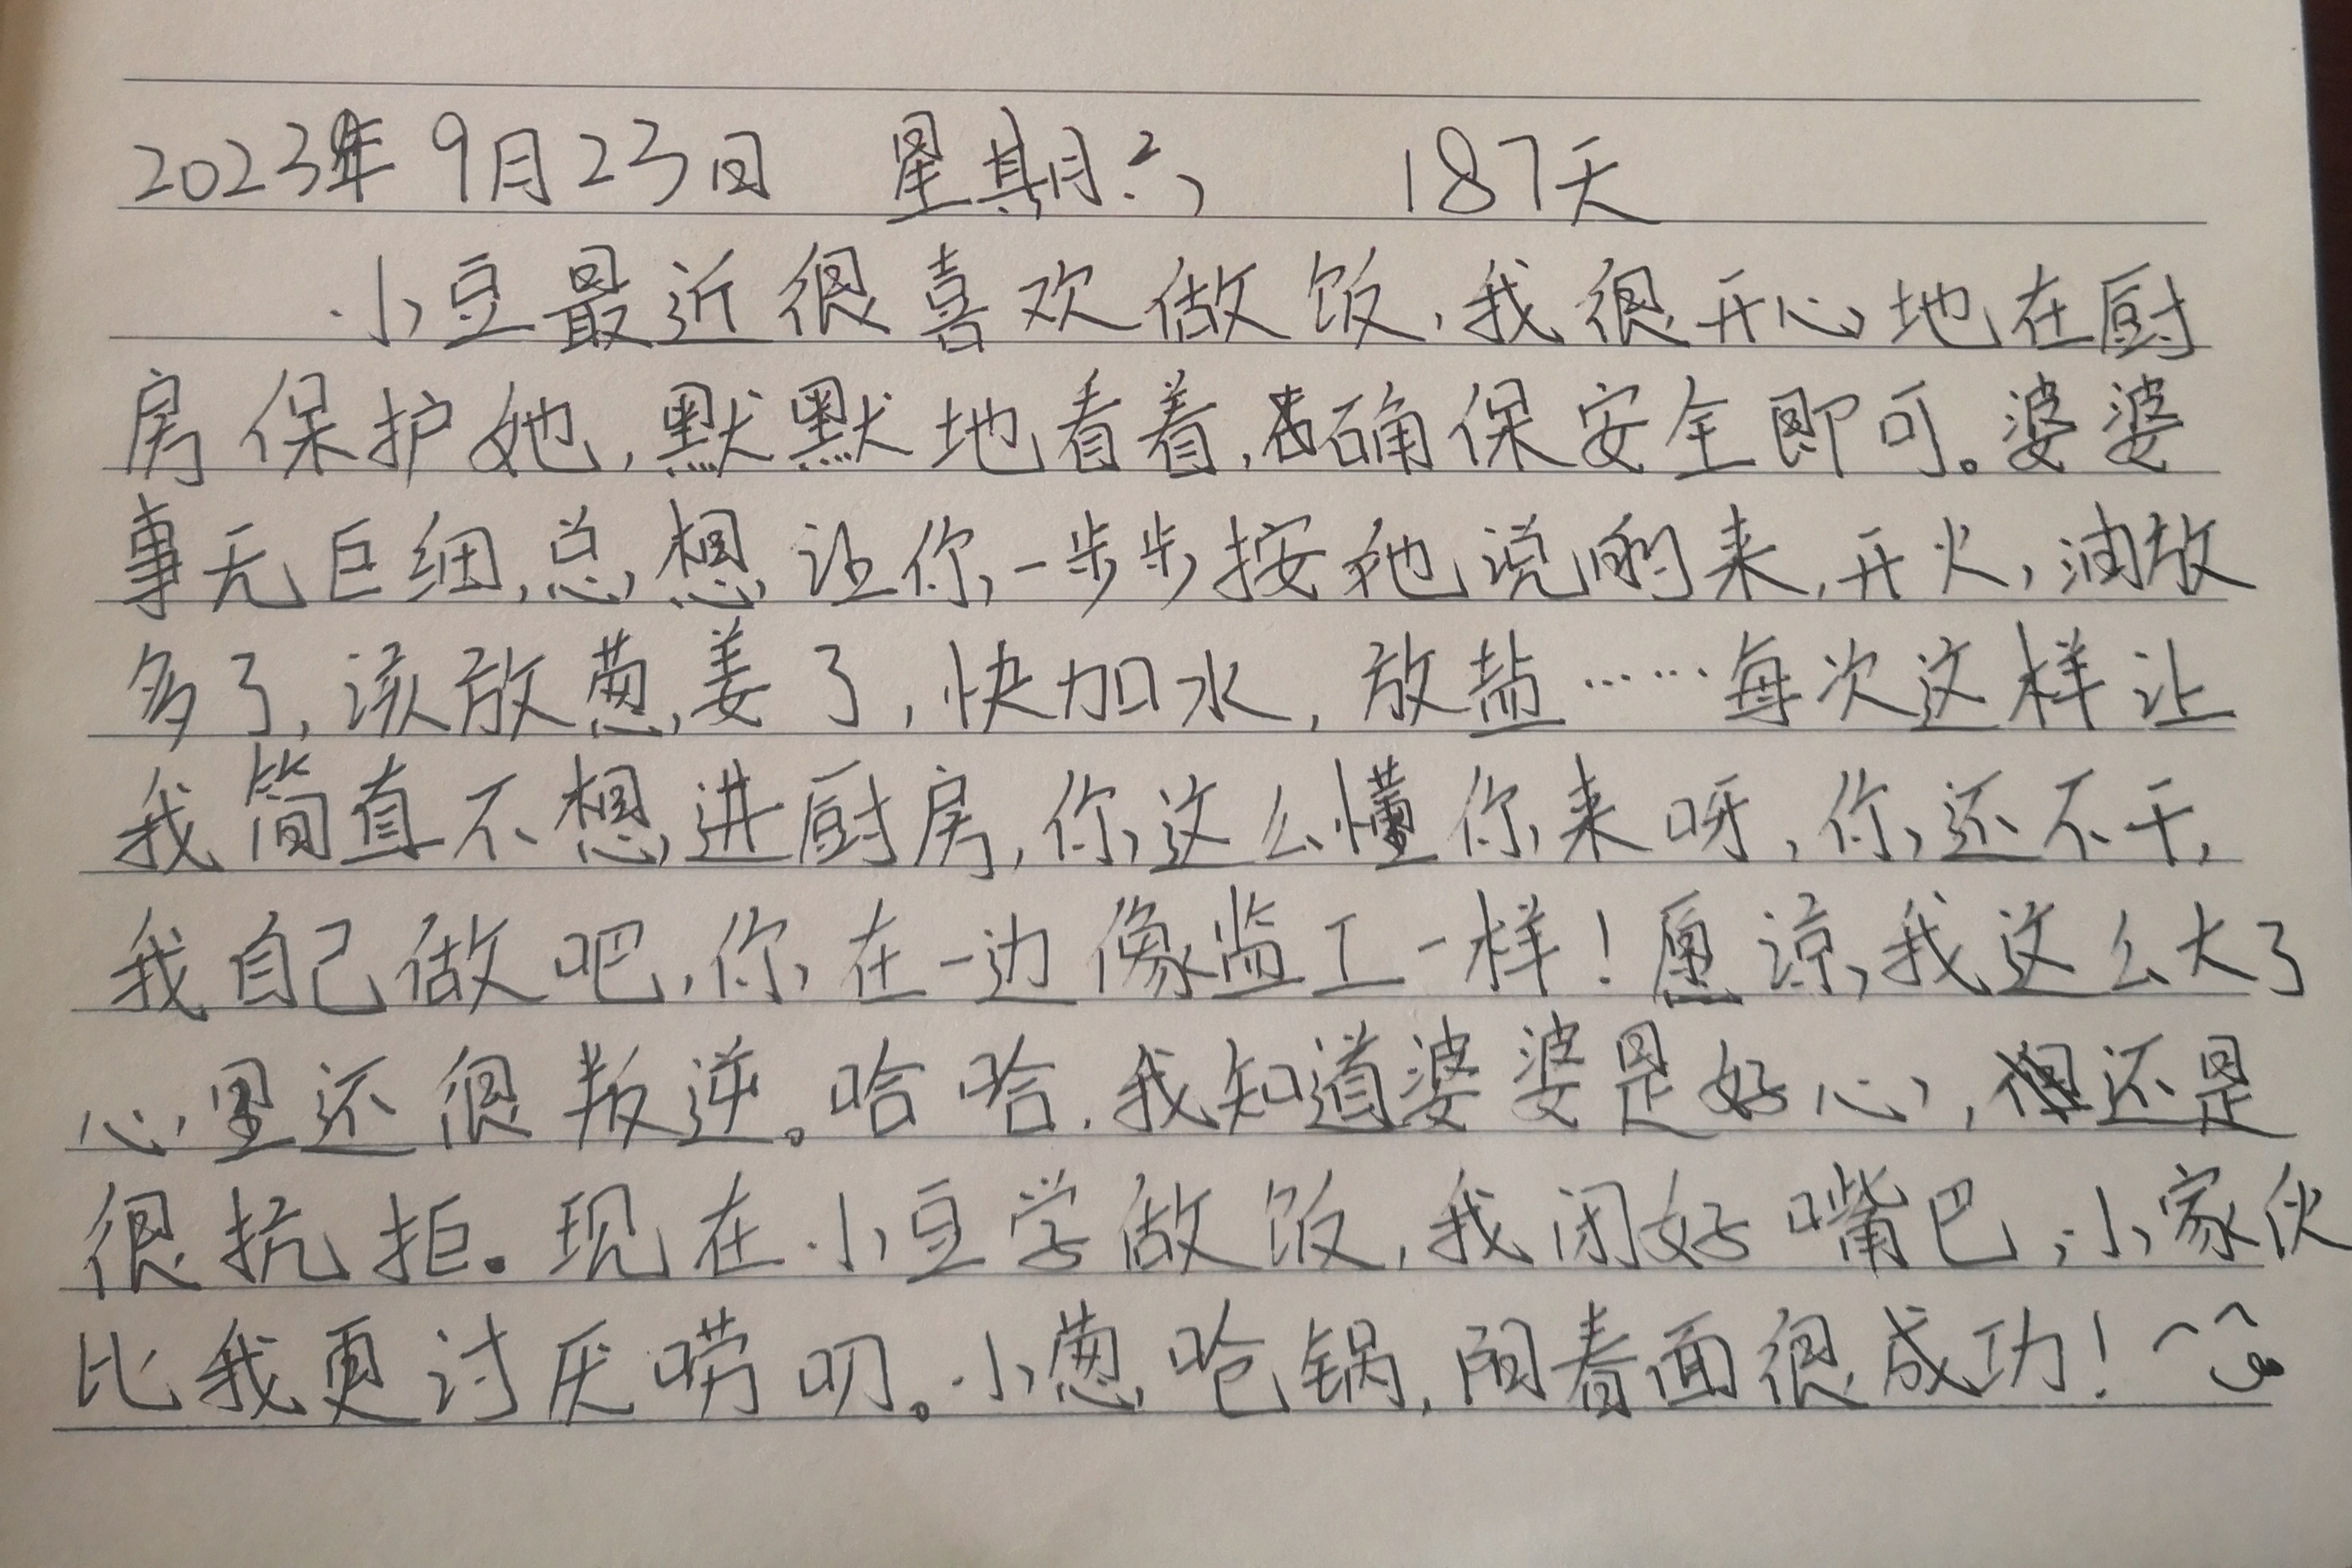 2023年9月23日 星期六 187天
小豆最近很喜欢做饭,我很开心地在厨
房保护她,默默地看着,确保安全即可。婆婆
事无巨细,总想让你一步步按她说的来,开火,油放
多了,该放葱姜了,快加水,放盐……每次这样让
我简直不想进厨房,你这么懂你来呀,你还不干,
我自己做吧,你在一边像监工一样!原谅我这么大了
心里还很叛逆。哈哈,我知道婆婆是好心,但还是
很抗拒。现在小豆学做饭,我闭好嘴巴,小家伙
比我更讨厌唠叨。小葱呛锅,闻着面很成功!